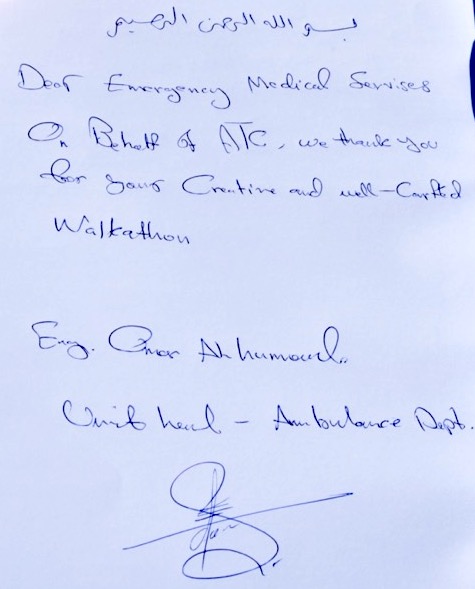 بسم الله الرحمن الرحيم
Dear Emergency Medical Servises
On Behalf of ATC, we thank you
for your Creative and well-Carfted
Walkathon
Eng. Omar Alhumoud.
Unit head - Ambulance Dept.